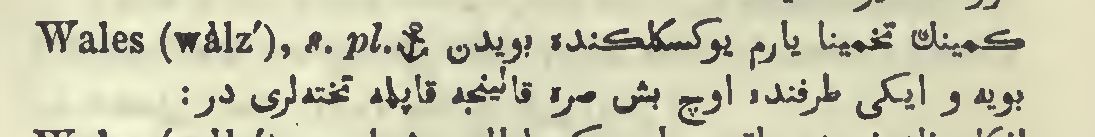 Wales (wålz′), s. pl. ⚓ كمينك تخمينا يارم يوكسكلكنده بويدن
بويه و ايكى طرفنده اوچ بش صره قالينجه قاپلمه تخته‌لرى در :